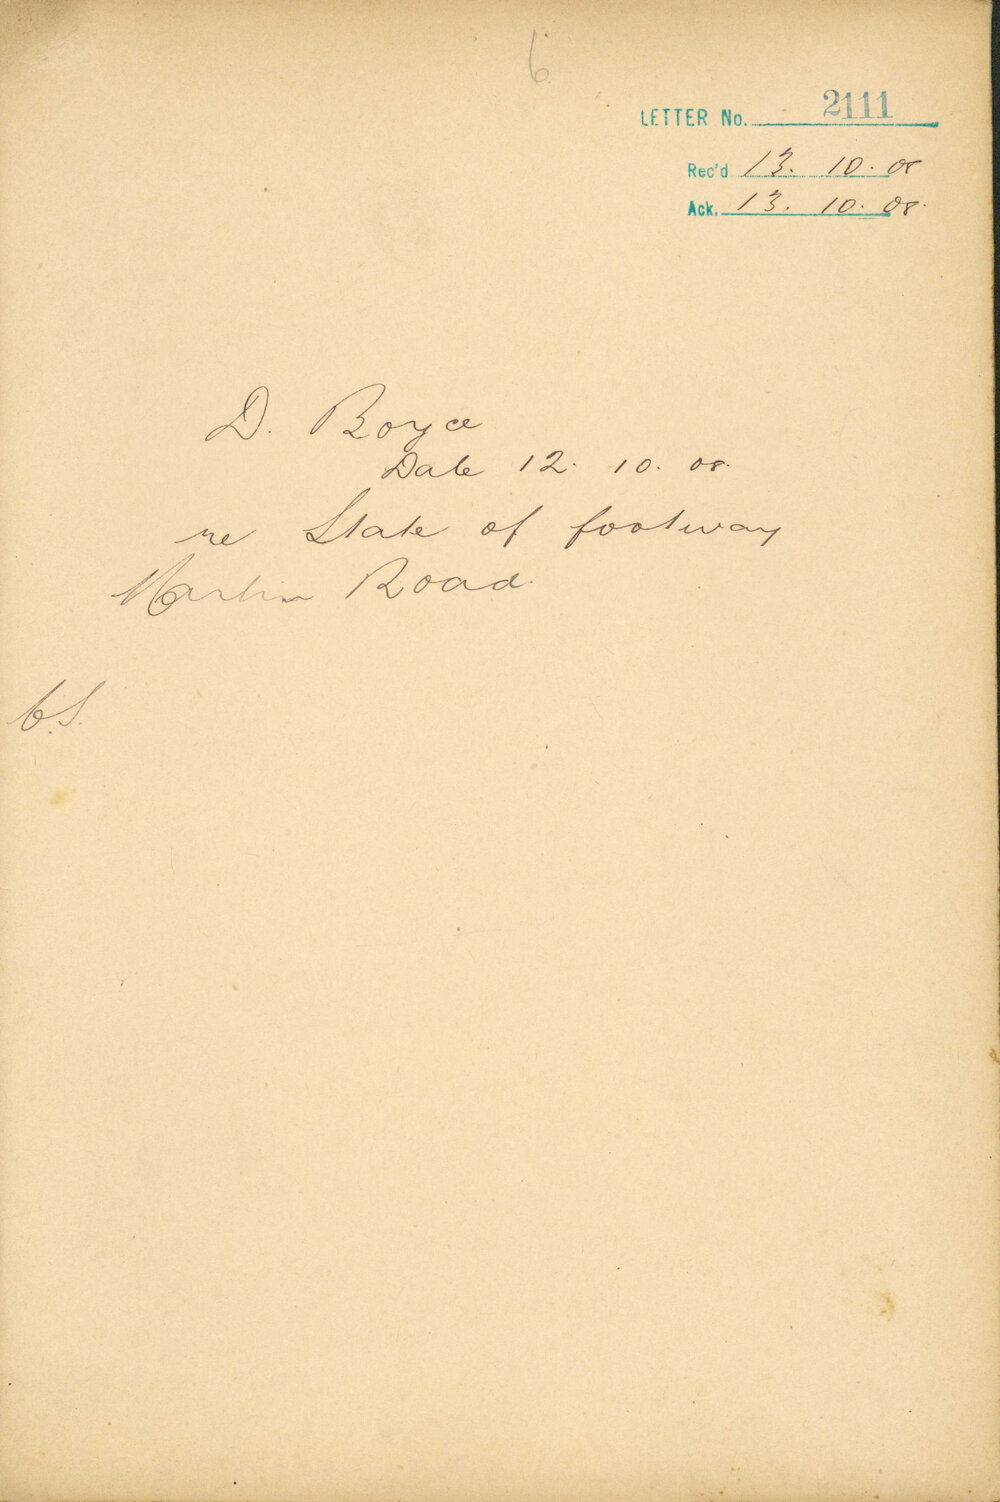 6
LETTER No. 2111
Rec'd 13. 10. 08
Ack. 13. 10. 08.
D. Boyce
Date 12. 10. 08.
re State of footway
Martin Road.